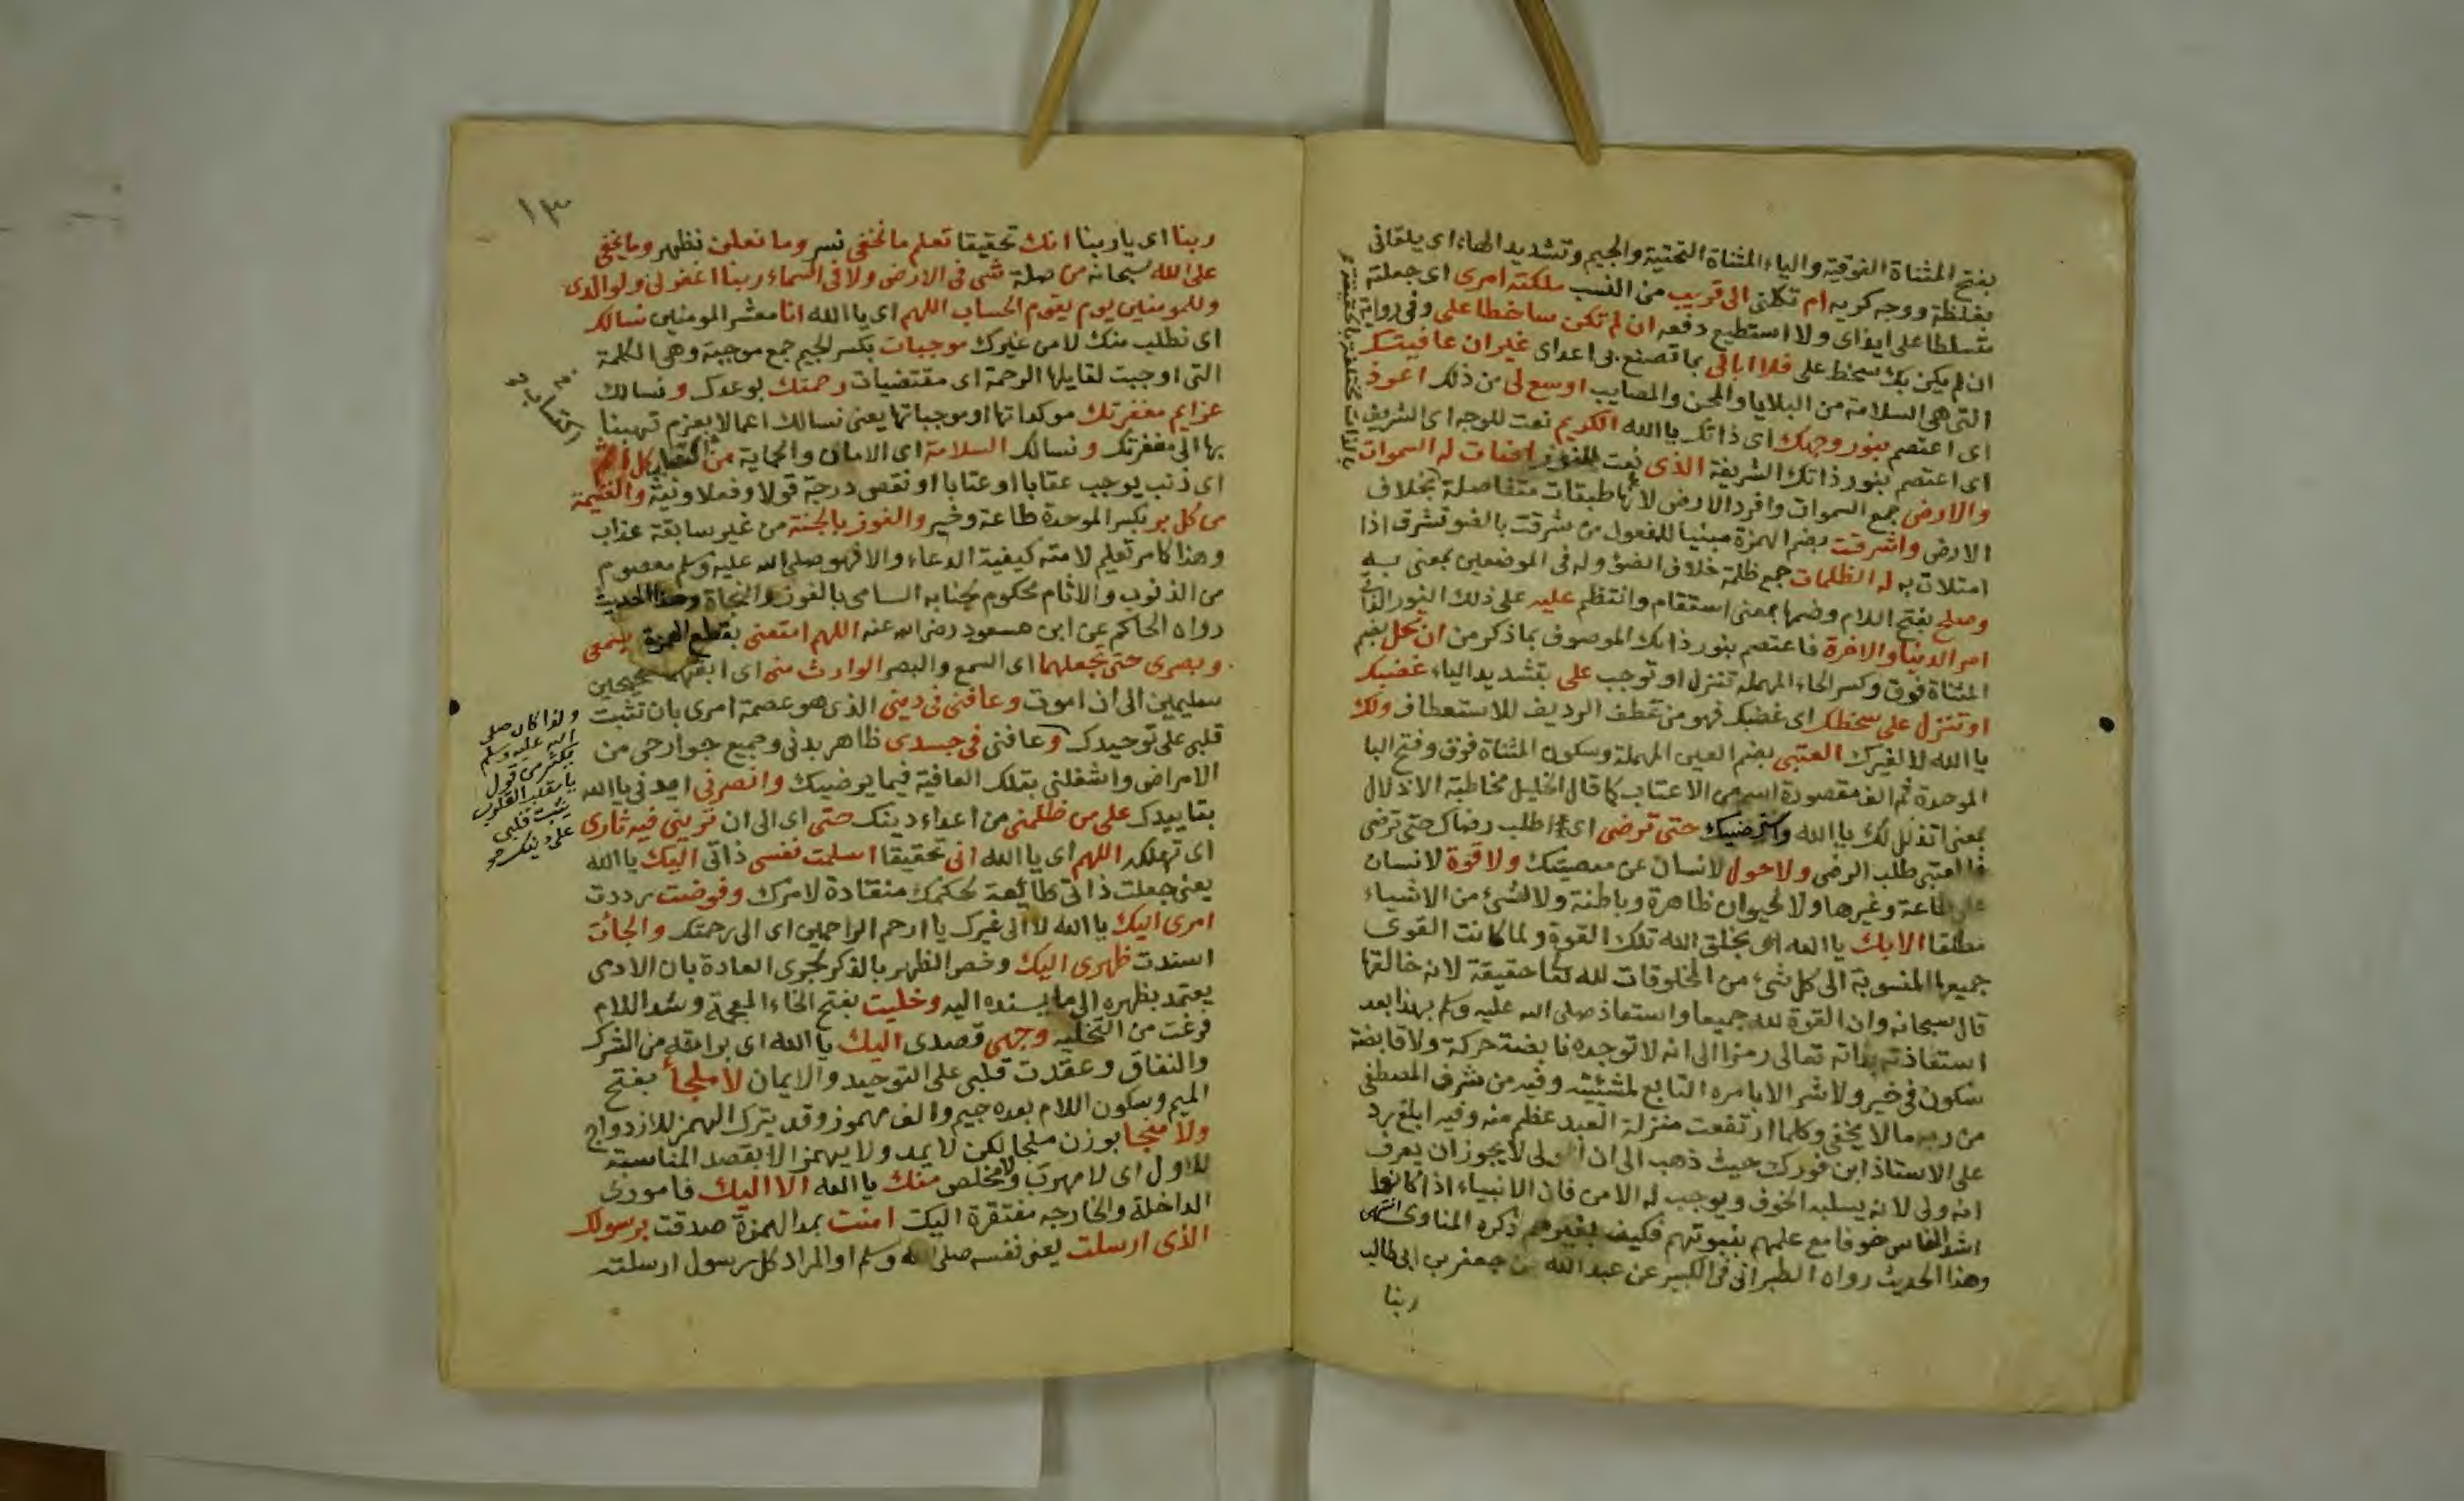 بفتح المثناة الفوقية والياء المثناة التحتية والجيم وتشديد الهاء اى يلقانى
بغلظة ووجه كريه ام تكلنى الى قريب من النسب ملكته امرى اى جعلته
متسلطا على ايذاى ولا استطيع دفعه ان لم تكن ساخطا على وفى رواية
ان لم يكن بك سخط على فلا ابالى بما تصنع بى اعداى غير ان عافيتك
التى هى السلامة من البلايا والمحن والمصايب اوسع لى من ذلك اعوذ
اى اعتصم بنور وجهك اى ذاتك يا الله الكريم نعت للوجه اى الشريف
اى اعتصم بنور ذاتك الشريفة الذى نعت للنور اضات له السموات
والارض جمع السموات وافرد الارض لانها طبقات متفاصلة بخلاف
الارض واشرقت بضم الهمزة مبنيا للمفعول من شرقت بالضو تشرق اذا
امتلات به له الظلمات جمع ظلمة خلاف الضؤ وله فى الموضعين بمعنى به
وصلح بفتح اللام وضمها بمعنى استقام وانتظم عليه على ذلك النور
امر الدنيا والاخرة فاعتصم بنور ذاتك الموصوف بما ذكر من ان تحل بضم
المثناة فوق وكسر الحاء المهملة تنزل او توجب على بتشديد الياء غضبك
او تنزل على سخطك اى غضبك فهو من عطف الرديف للاستعطاف ولك
يا الله لا لغيرك العتبى بضم العين المهملة وسكون المثناة فوق وفتح البا
الموحدة ثم الف مقصورة اسم من الاعتاب كما قال الخليل مخاطبة الاذلال
بمعنى اتذلل لك يا الله واسترضيك حتى ترضى اى اطلب رضاك حتى ترضى
فالعتبى طلب الرضى ولا حول لانسان عن معصيتك ولا قوة لانسان
على طاعة وغيرها ولا لحيوان ظاهرة وباطنة ولا لشئ من الاشياء
مطلقا الا بك يا الله اى بخلق الله تلك القوة ولما كانت القوى
جميعها المنسوبة الى كل شئ من المخلوقات لله حقيقة لانه خالقها
قال سبحانه وان القوة لله جميعا واستعاذ صلى الله عليه وسلم بهذا بعد
استعاذته بذاته تعالى رمزا الى انه لا توجد نابضة حركة ولا قابضة
سكون فى خير ولا شر الا بامره التابع لمشيئته وفيه من شرف المصطفى
من ربه ما لا يخفى وكلما ارتفعت منزلة العبد عظم منه وفيه ابلغ رد
على الاستاذ ابن فورك حيث ذهب الى ان الولى لا يجوز ان يعرف
انه ولى لانه يسلبه الخوف ويوجب له الامن فان الانبياء اذا كانوا
اشد الناس خوفا مع علمهم بنبوتهم فكيف بغيرهم ذكره المناوى انتهى
وهذا الحديث رواه الطبرانى فى الكبير عن عبد الله بن جعفر بن ابى طالب
ربنا
١٣
ربنا اى يا ربنا انك تحقيقا تعلم ما نخفى نسر وما نعلن نظهر وما يخفى
على الله سبحانه من صلة شى فى الارض ولا فى السماء ربنا اغفر لى ولوالدى
وللمومنين يوم يقوم الحساب اللهم اى يا الله انا معشر المومنين نسالك
اى نطلب منك لا من غيرك موجبات بكسر الجيم جمع موجبة وهى الكلمة
التى اوجبت لقايلها الرحمة اى مقتضيات رحمتك بوعدك ونسالك
عزايم مغفرتك موكداتها او موجباتها يعنى نسالك اعمالا بعزم تهبنا
بها الى مغفرتك ونسالك السلامة اى الامان والحماية من كل اثم
اى ذنب يوجب عقابا او عتابا او نقص درجة قولا وفعلا ونية والغنيمة
من كل بر بكسر الموحدة طاعة وخير والفوز بالجنة من غير سابقة عذاب
وهذا كامر تعليم لامته كيفية الدعاء والا فهو صلى الله عليه وسلم معصوم
من الذنوب والاثام محكوم لجنابه السامى بالفوز والنجاة وهذا الحديث
رواه الحاكم عن ابن مسعود رضى الله عنه اللهم امتعنى بقطع الهمزة بسمعى
وبصرى حتى تجعلهما اى السمع والبصر الوارث منى اى ابقهما صحيحين
سليمين الى ان اموت وعافنى فى دينى الذى هو عصمة امرى بان تثبت
قلبى على توحيدك وعافنى فى جسدى ظاهر بدنى وجميع جوارحى من
الامراض واشغلنى بتلك العافية فيما يرضيك وانصرنى امدنى يا الله
بتاييدك على من ظلمنى من اعداء دينك حتى اى الى ان ترينى فيه ثارى
اى تهلكه اللهم اى يا الله انى تحقيقا اسلمت نفسى ذاتى اليك يا الله
يعنى جعلت ذاتى طائعة لحكمك منقادة لامرك وفوضت رددت
امرى اليك يا الله لا الى غيرك يا ارحم الراحمين اى الى رحمتك والجات
اسندت ظهرى اليك وخص الظهر بالذكر لجرى العادة بان الادمى
يعتمد بظهره الى ما يسنده اليه وخليت بفتح الخاء المعجمة وشد اللام
فرغت من التخلية وجهى قصدى اليك يا الله اى براته من الشرك
والنفاق وعقدت قلبى على التوحيد والايمان لا ملجأ بفتح
الميم وسكون اللام بعده جيم والف مهموز وقد يترك الهمز للازدواج
ولا منجا بوزن ملجا لكن لا يمد ولا يهمز الا بقصد المناسبة
للاول اى لا مهرب ولا مخلص منك يا الله الا اليك فامورى
الداخلة والخارجه مفتقرة اليك امنت بمد الهمزة صدقت برسولك
الذى ارسلت يعنى نفسه صلى الله وسلم او المراد كل رسول ارسلته
اكتساب
ولذا كان صلى
الله عليه وسلم
يكثر من قول
يا مقلب القلوب
ثبت قلبى
على دينك